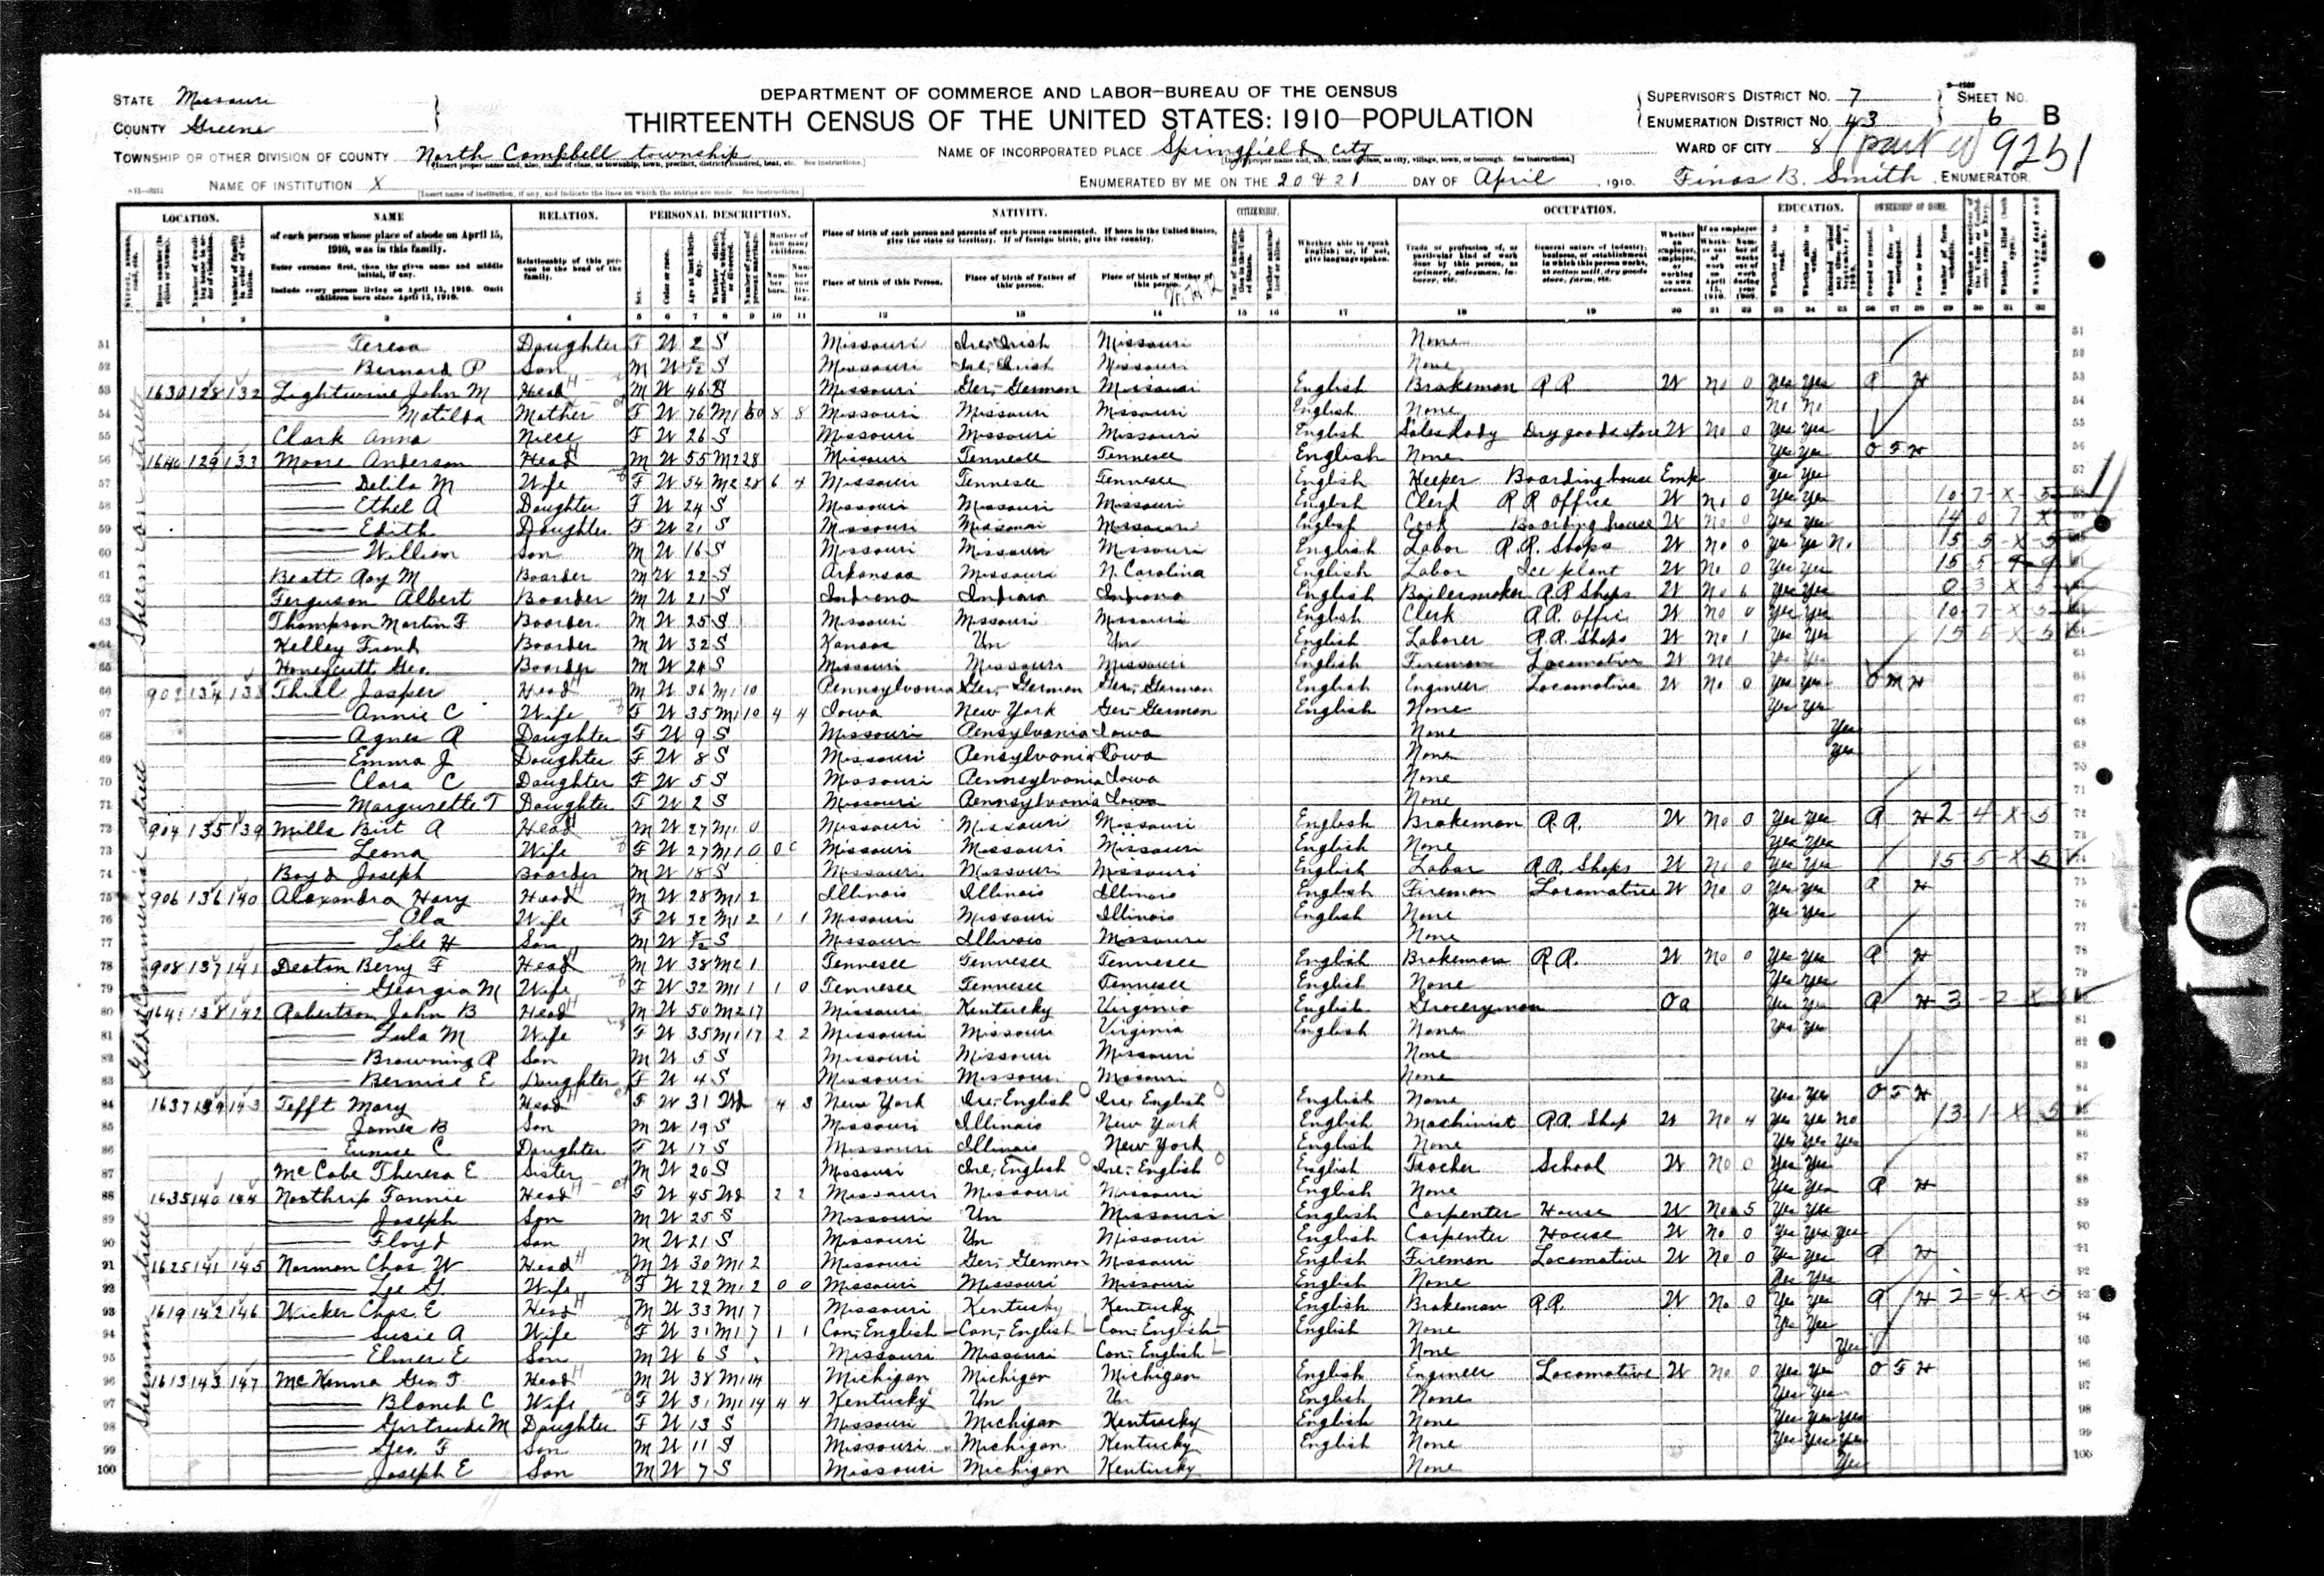 DEPARTMENT OF COMMERCE AND LABOR—BUREAU OF THE CENSUS
THIRTEENTH CENSUS OF THE UNITED STATES: 1910—POPULATION
STATE Missouri
COUNTY Greene
TOWNSHIP OR OTHER DIVISION OF COUNTY North Campbell township
NAME OF INSTITUTION X
NAME OF INCORPORATED PLACE Springfield City
ENUMERATED BY ME ON THE 20 & 21 DAY OF April, 1910. Finas B. Smith, ENUMERATOR.
SUPERVISOR'S DISTRICT NO. 7
ENUMERATION DISTRICT NO. 43
SHEET NO. 6 B
WARD OF CITY 8
9251
LOCATION. NAME RELATION. PERSONAL DESCRIPTION. NATIVITY. CITIZENSHIP. OCCUPATION. EDUCATION. OWNERSHIP OF HOME.
of each person whose place of abode on April 15, 1910, was in this family.
Enter surname first, then the given name and middle initial, if any.
Include every person living on April 15, 1910. Omit children born since April 15, 1910.
Relationship of this person to the head of the family.
Place of birth of each person and parents of each person enumerated. If born in the United States, give the state or territory. If of foreign birth, give the country.
Place of birth of this Person. Place of birth of Father of this person. Place of birth of Mother of this person.
Whether able to speak English; or, if not, give language spoken.
51 Teresa Daughter F W 2 S Missouri Ire; Irish Missouri None
52 Bernard P Son M W S Missouri Ire; Irish Missouri None
53 1630 128 132 Lightwine John M Head M W 46 Missouri Ger; German Missouri English Brakeman R R W No 0 Yes Yes R H
54 Matilda Mother F W 76 M1 60 8 8 Missouri Missouri Missouri English None No No
55 Clark Anna Niece F W 26 S Missouri Missouri Missouri English Sales Lady Dry goods store W No 0 Yes Yes
56 1640 129 133 Moore Anderson Head M W 55 M2 28 Missouri Tennesee Tennesee English None Yes Yes O F H
57 Delila M Wife F W 54 M2 28 6 4 Missouri Tennesee Tennesee English Keeper Boarding house Emp Yes Yes
58 Ethel A Daughter F W 24 S Missouri Missouri Missouri English Clerk R R office W No 0 Yes Yes 10 7 X 5
59 Edith Daughter F W 21 S Missouri Missouri Missouri English Cook Boarding house W No 0 Yes Yes 14 0 7 X
60 William Son M W 16 S Missouri Missouri Missouri English Labor R.R. Shops W No 0 Yes Yes No 15 5 X 5
61 Beatt Roy M Boarder M W 22 S Arkansas Missouri N. Carolina English Labor Ice plant W No 0 Yes Yes 15 5 9 9
62 Ferguson Albert Boarder M W 21 S Indiana Indiana Indiana English Boilermaker R R Shops W No 6 Yes Yes 0 3 X 5
63 Thompson Martin F Boarder M W 25 S Missouri Missouri Missouri English Clerk R.R. offic W No 0 Yes Yes 10 7 X 5
64 Kelley Frank Boarder M W 32 S Kansas Un Un English Laborer R.R. Shops W No 1 Yes Yes 15 5 X 5
65 Honeycutt Geo. Boarder M W 24 S Missouri Missouri Missouri English Fireman Locomotive W No Yes Yes
66 902 134 138 Thill Jasper Head M W 36 M1 10 Pennsylvania Ger; German Ger; German English Engineer Locomotive W No 0 Yes Yes O M H
67 Annie C Wife F W 35 M1 10 4 4 Iowa New York Ger; German English None Yes Yes
68 Agnes R Daughter F W 9 S Missouri Pensylvania Iowa None Yes
69 Emma J Daughter F W 8 S Missouri Pensylvania Iowa None Yes
70 Clara C Daughter F W 5 S Missouri Pennsylvania Iowa None
71 Margurette T Daughter F W 2 S Missouri Pennsylvania Iowa None
72 904 135 139 Mills Birt A Head M W 27 M1 0 Missouri Missouri Missouri English Brakeman R.R. W No 0 Yes Yes R H 2 4 X 5
73 Leona Wife F W 27 M1 0 0 0 Missouri Missouri Missouri English None Yes Yes
74 Boyd Joseph Boarder M W 18 S Missouri Missouri Missouri English Labor R.R. Shops W No 0 Yes Yes 15 5 X 5
75 906 136 140 Alexandra Hary Head M W 28 M1 2 Illinois Illinois Illinois English Fireman Locomative W No 0 Yes Yes R H
76 Ola Wife F W 22 M1 2 1 1 Missouri Missouri Illinois English None Yes Yes
77 Lile H Son M W S Missouri Illinois Missouri None
78 908 137 141 Deaton Berry F Head M W 38 M2 1 Tennesee Tennesee Tennesee English Brakeman R.R. W No 0 Yes Yes R H
79 Georgia M Wife F W 32 M1 1 1 0 Tennesee Tennesee Tennesee English None Yes Yes
80 1641 138 142 Robertson John B Head M W 50 M2 17 Missouri Kentucky Virginia English Groceryman Oa Yes Yes R H 3 2 X
81 Lula M Wife F W 35 M1 17 2 2 Missouri Missouri Virginia English None Yes Yes
82 Browning R Son M W 5 S Missouri Missouri Missouri None
83 Bernice E Daughter F W 4 S Missouri Missouri Missouri None
84 1637 139 143 Tefft Mary Head F W 31 Wd 4 3 New York Ire; English Ire; English English None Yes Yes O F H
85 James B Son M W 19 S Missouri Illinois New York English Machinist R.R. Shop W No 4 Yes Yes No 13 1 X 5
86 Eunice C Daughter F W 17 S Missouri Illinois New York English None Yes Yes Yes
87 McCabe Theresa E Sister M W 20 S Missouri Ire; English Ire; English English Teacher School W No 0 Yes Yes
88 1635 140 144 Northrip Fannie Head F W 45 Wd 2 2 Missouri Missouri Missouri English None Yes Yes R H
89 Joseph Son M W 25 S Missouri Un Missouri English Carpenter House W No 5 Yes Yes
90 Floyd Son M W 21 S Missouri Un Missouri English Carpenter House W No 0 Yes Yes Yes
91 1625 141 145 Norman Chas W Head M W 30 M1 2 Missouri Ger; German Missouri English Fireman Locomotive W No 0 Yes Yes R H
92 Lee G Wife F W 22 M1 2 0 0 Missouri Missouri Missouri English None Yes Yes
93 1619 142 146 Wicker Chas. E Head M W 33 M1 7 Missouri Kentucky Kentucky English Brakeman R.R. W No 0 Yes Yes R H 2 4 X 5
94 Susie A Wife F W 31 M1 7 1 1 Can; English Can; English Can; English English None Yes Yes
95 Elmer E Son M W 6 S Missouri Missouri Can; English None Yes
96 1613 143 147 McKenna Geo F Head M W 38 M1 14 Michigan Michigan Michigan English Engineer Locomotive W No 0 Yes Yes O F H
97 Blanch C Wife F W 31 M1 14 4 4 Kentucky Un Un English None Yes Yes
98 Gertrude M Daughter F W 13 S Missouri Michigan Kentucky English None Yes Yes Yes
99 Geo. F Son M W 11 S Missouri Michigan Kentucky English None Yes Yes Yes
100 Joseph E Son M W 7 S Missouri Michigan Kentucky None Yes
Sherman street
Commercial street
Sherman street
101